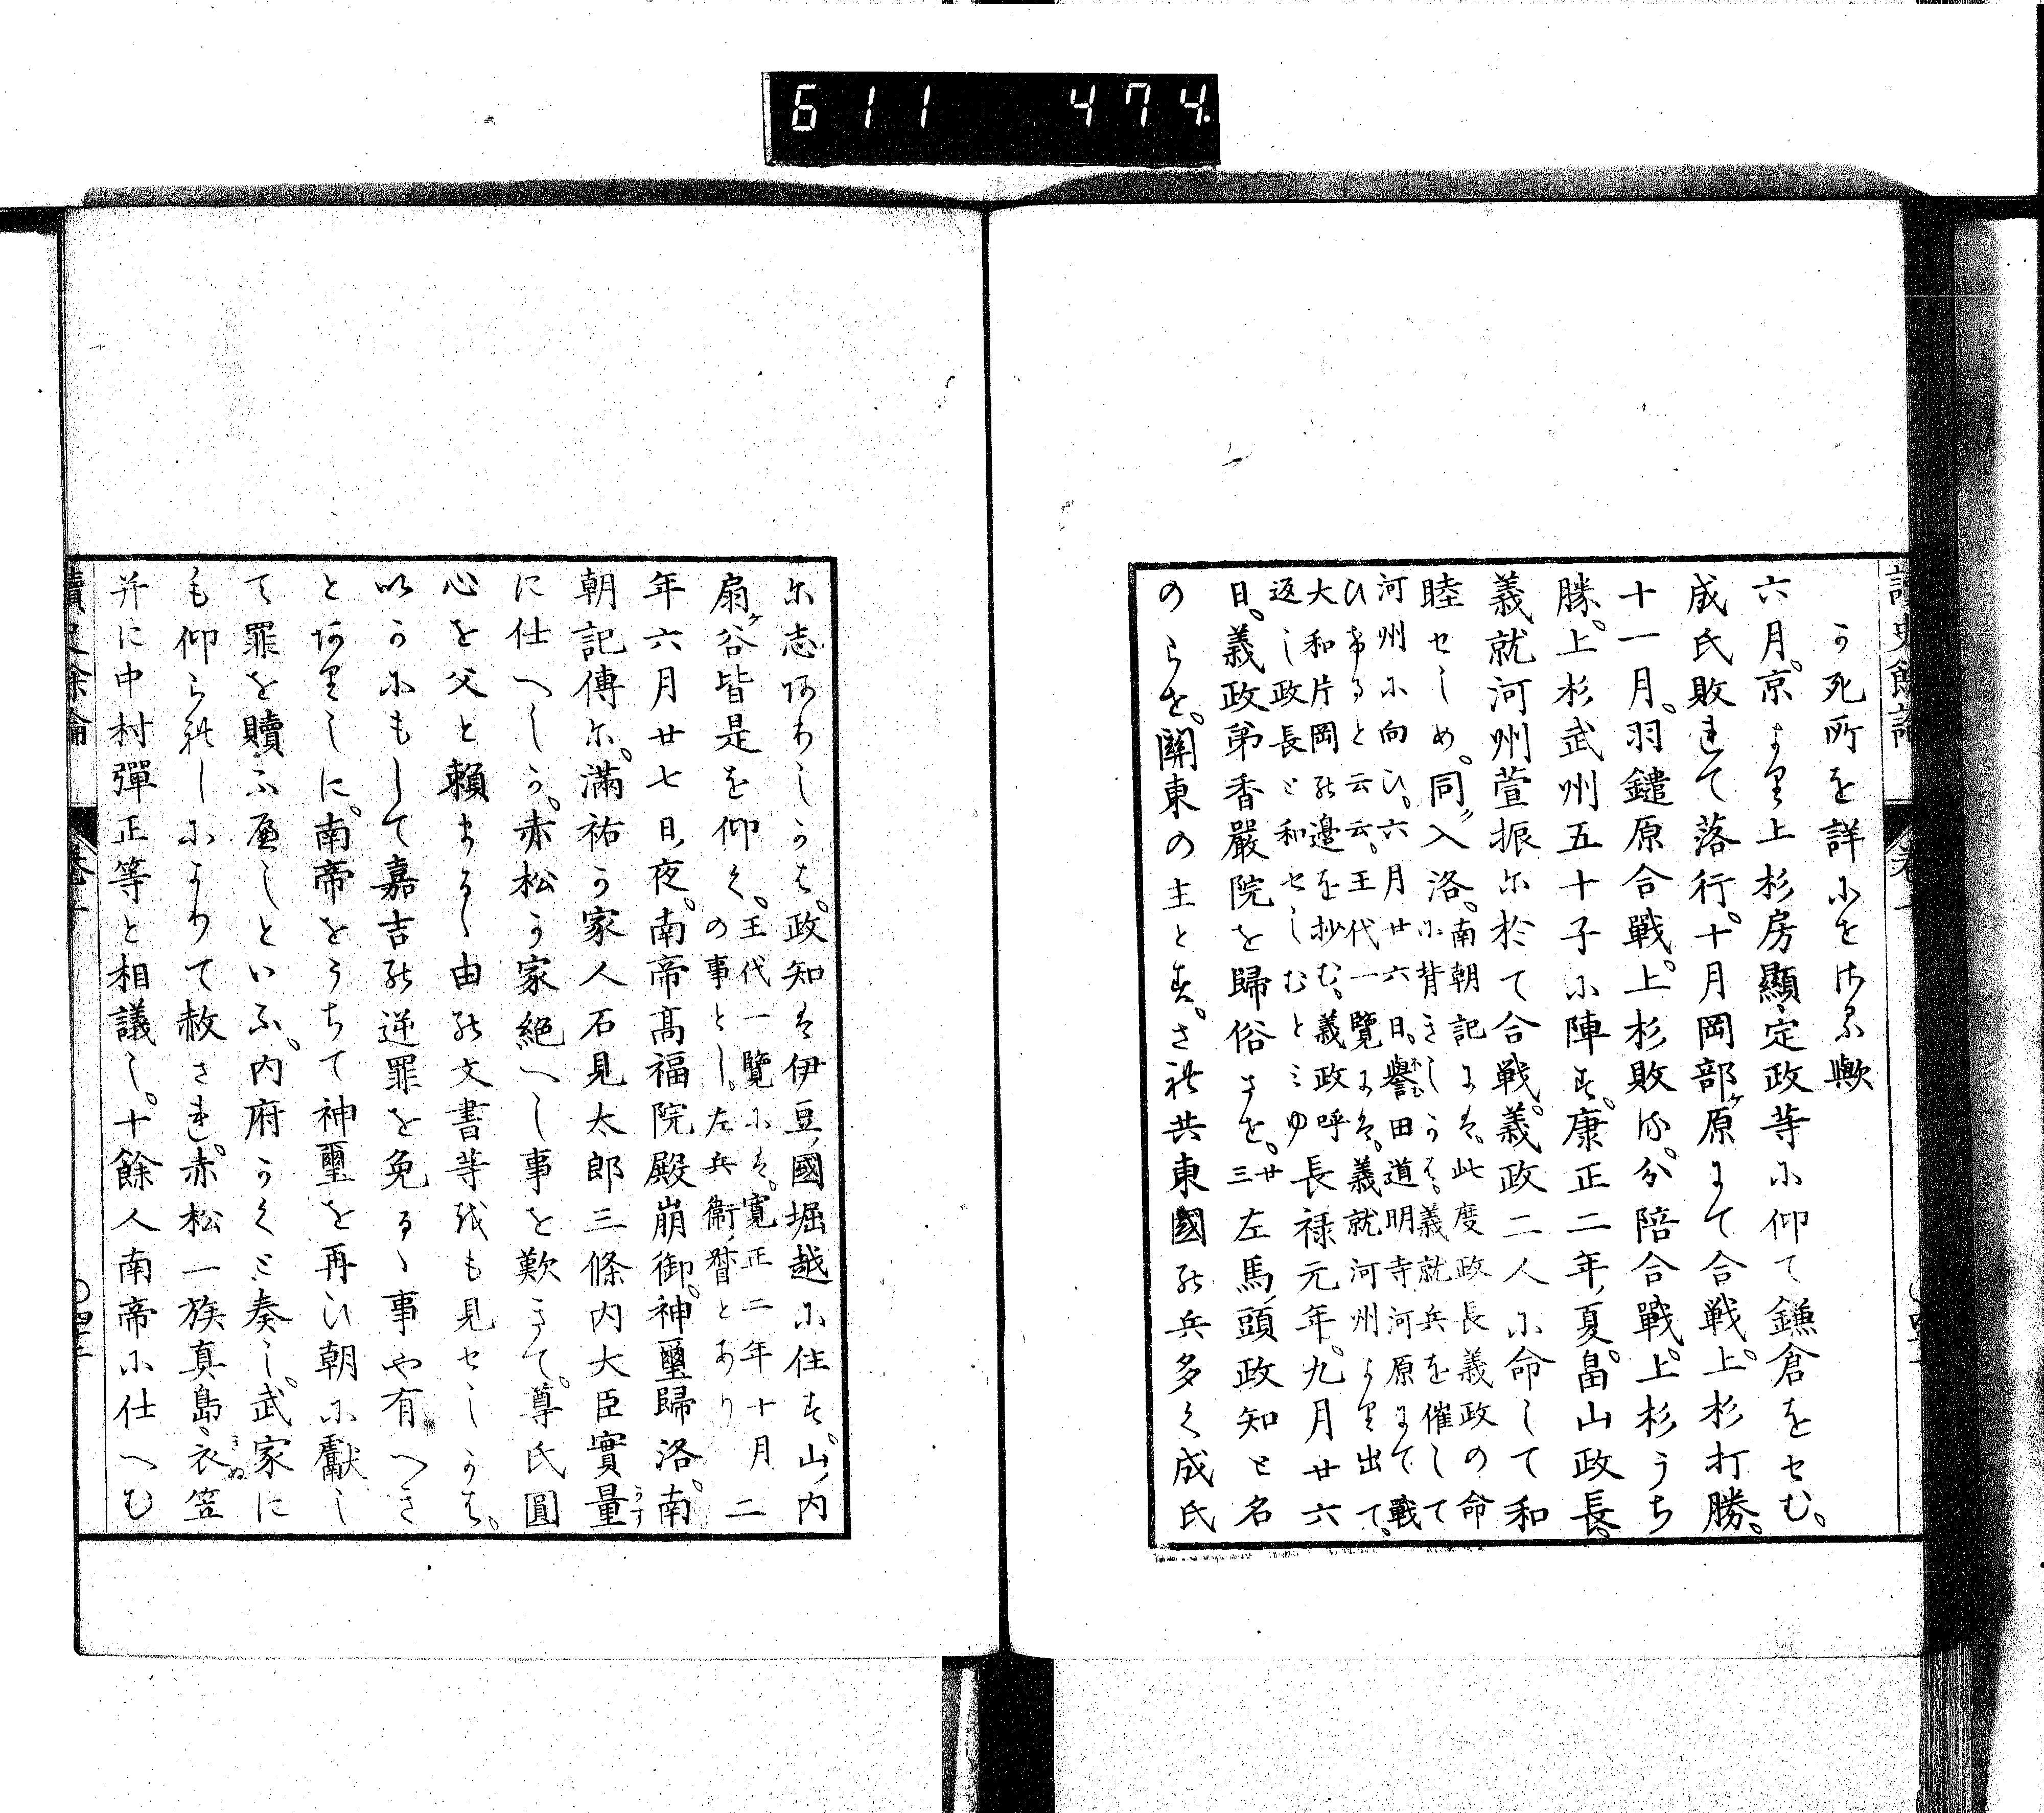 611 474
讀史餘論
か死所を詳にせさる歟
六月。京より上杉房顯、定政等に仰て鎌倉をせむ。
成氏敗れて落行。十月岡部ヶ原にて合戦。上杉打勝。
十一月。羽鑓原合戰。上杉敗る。分陪合戰。上杉うち
勝。上杉武州五十子に陣す。康正二年、夏。畠山政長。
義就河州萱振に於て合戦。義政二人に命して和
睦せしめ。同ク入洛。南朝記には。此度政長義政の命
に背きしかは。義就兵を催して
河州に向ひ。六月廿六日。譽田道明寺河原にて戰
ひ有ると云云。王代一覽には。義就河州より出て。
大和片岡の邊を抄む。義政呼
返し政長と和せしむとみゆ
長禄元年。九月廿六
日。義政弟香嚴院を歸俗さす。廿三左馬、頭政知と名
のらす。關東の主とす。され共東國の兵多く成氏
に志ありしかは。政知は伊豆、國堀越に住す。山、内
扇ヶ谷皆是を仰く。王代一覽には。寛正二年十月
の事とし。左兵衞、督とあり
二
年六月廿七日、夜。南帝高福院殿崩御。神璽歸洛。南
朝記傳に。滿祐か家人石見太郎三條内大臣實量
に仕へしか。赤松か家絶へし事を歎きて。尊氏圓
心を父と頼まるゝ由の文書等をも見せしかは。
いかにもして嘉吉の逆罪を免るゝ事や有へき
とありしに。南帝をうちて神璽を再ひ朝に獻し
て罪を贖ふへしといふ。内府かくと奏し。武家に
も仰られしによりて赦され。赤松一族真島、衣笠
并に中村彈正等と相議し。十餘人南帝に仕へむ
讀史餘論